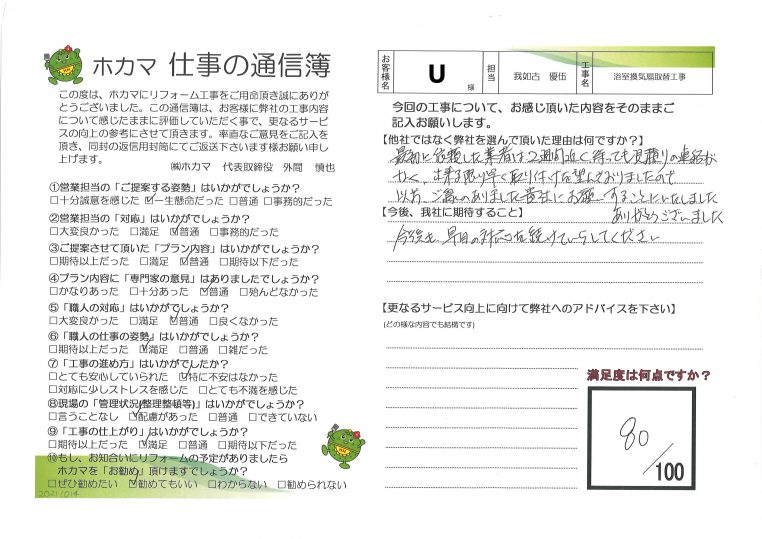 ホカマ 仕事の通信簿
この度は、ホカマにリフォーム工事をご用命頂き誠にありが
とうございました。この通信簿は、お客様に弊社の工事内容
について感じたままに評価していただく事で、更なるサービ
スの向上の参考にさせて頂きます。率直なご意見をご記入を
頂き、同封の返信用封筒にてご返送下さいます様お願い申し
上げます。
㈱ホカマ 代表取締役 外間 慎也
①営業担当の「ご提案する姿勢」はいかがでしょうか?
□十分誠意を感じた ☑一生懸命だった □普通 □事務的だった
②営業担当の「対応」はいかがでしょうか?
□大変良かった □満足 ☑普通 □事務的だった
③ご提案させて頂いた「プラン内容」はいかがでしょうか?
□期待以上だった □満足 ☑普通 □期待以下だった
④プラン内容に「専門家の意見」はありましたでしょうか?
□かなりあった □十分あった ☑普通 □殆んどなかった
⑤「職人の対応」はいかがでしょうか?
□大変良かった □満足 ☑普通 □良くなかった
⑥「職人の仕事の姿勢」はいかがでしょうか?
□期待以上だった ☑満足 □普通 □雑だった
⑦「工事の進め方」はいかがでしたか?
□とても安心していられた ☑特に不安はなかった
□対応に少しストレスを感じた □とても不満を感じた
⑧現場の「管理状況(整理整頓等)」はいかがでしょうか?
□言うことなし ☑配慮があった □普通 □できていない
⑨「工事の仕上がり」はいかがでしょうか?
□期待以上だった ☑満足 □普通 □期待以下だった
⑩もし、お知合いにリフォームの予定がありましたら
ホカマを「お勧め」頂けますでしょうか?
□ぜひ勧めたい ☑勧めてもいい □わからない □勧められない
20211014
お客様名 U 様 担当 我如古 優伍 工事名 浴室換気扇取替工事
今回の工事について、お感じ頂いた内容をそのままご
記入お願いします。
【他社ではなく弊社を選んで頂いた理由は何ですか?】
最初に依頼した業者は2週間近く待っても見積りの連絡が
なく、出来る限り早く取り付けを望んでおりましたので
以前、ご縁のありました貴社にお願いすることにいたしました
ありがとうございました
【今後、我社に期待すること】
今後も、早目の対応を続けていらしてください
【更なるサービス向上に向けて弊社へのアドバイスを下さい】
(どの様な内容でも結構です)
満足度は何点ですか?
80
/100